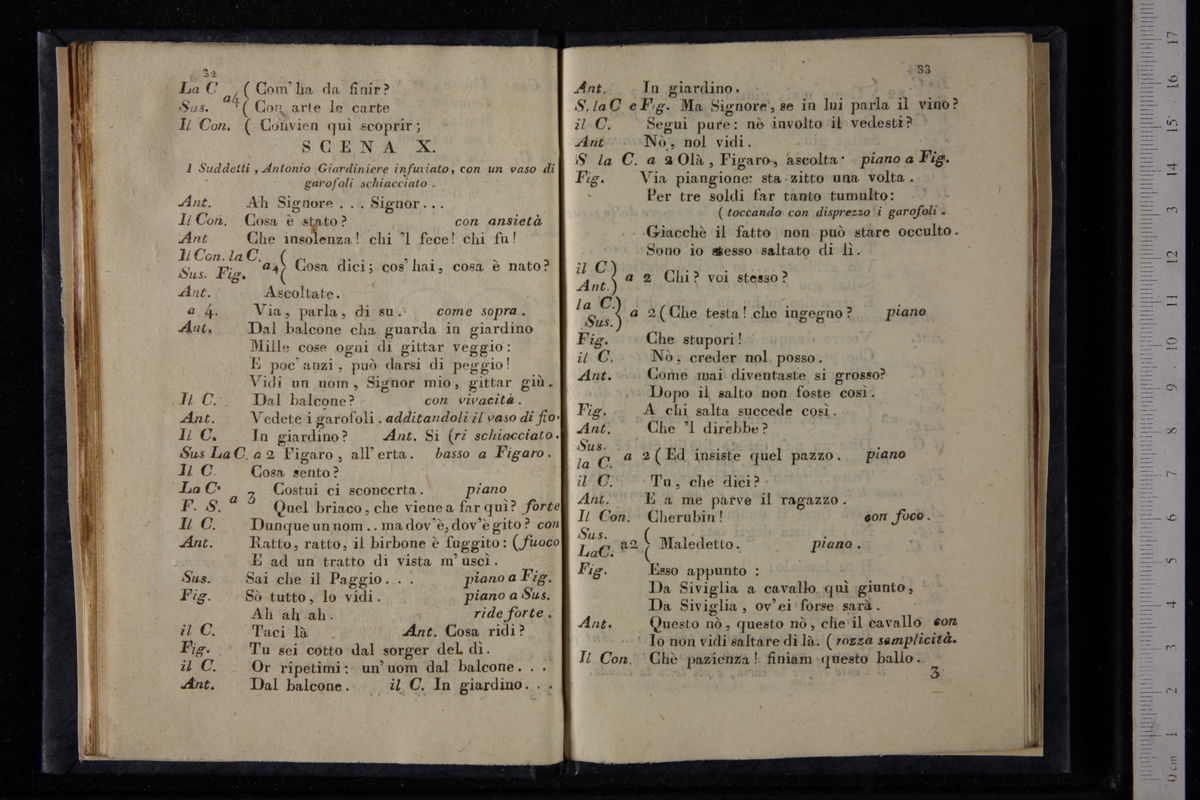 32
La C ( Com' ha da finir?
Sus. a4 ( Con arte le carte
Il Con. ( Convien quì scoprir;
SCENA X.
I Suddetti, Antonio Giardiniere infuriato, con un vaso di
garofoli schiacciato.
Ant. Ah Signore . . . Signor . . .
Il Con. Cosa è stato? con ansietà
Ant Che insolenza! chi 'l fece! chi fù!
Il Con. la C.
Sus. Fig. a4 Cosa dici; cos' hai, cosa è nato?
Ant. Ascoltate.
a 4. Via, parla, di su. come sopra.
Ant. Dal balcone cha guarda in giardino
Mille cose ogni dì gittar veggio:
E poc' anzi, può darsi di peggio!
Vidi un uom, Signor mio, gittar giù.
Il C. Dal balcone? con vivacità.
Ant. Vedete i garofoli. additandoli il vaso di fio-
Il C. In giardino? Ant. Si (ri schiacciato.
Sus La C. a 2 Figaro, all' erta. basso a Figaro.
Il C. Cosa sento?
La C. Costui ci sconcerta. piano
F. S. a 3 Quel briaco, che viene a far quì? forte
Il C. Dunque un uom . . ma dov'è, dov'è gito? con
Ant. Ratto, ratto, il birbone è fuggito: (fuoco
E ad un tratto di vista m' uscì.
Sus. Sai che il Paggio . . . piano a Fig.
Fig. Sò tutto, lo vidi. piano a Sus.
Ah ah ah. ride forte.
il C. Taci là Ant. Cosa ridi?
Fig. Tu sei cotto dal sorger deL dì.
il C. Or ripetimi: un' uom dal balcone . . .
Ant. Dal balcone. il C. In giardino . . .
33
Ant. In giardino.
S. la C e Fig. Ma Signore, se in lui parla il vino?
il C. Segui pure: nè involto il vedesti?
Ant Nò, nol vidi.
S la C. a 2 Olà, Figaro, ascolta. piano a Fig.
Fig. Via piangione: sta zitto una volta.
Per tre soldi far tanto tumulto:
( toccando con disprezzo i garofoli.
Giacchè il fatto non può stare occulto.
Sono io stesso saltato di lì.
il C )
Ant.) a 2 Chi? voi stesso?
la C.)
Sus.) a 2 (Che testa! che ingegno? piano
Fig. Che stupori!
il C. Nò, creder nol posso.
Ant. Come mai diventaste si grosso?
Dopo il salto non foste così.
Fig. A chi salta succede così.
Ant. Che 'l direbbe?
Sus.
la C. a 2 ( Ed insiste quel pazzo. piano
il C. Tu, che dici?
Ant. E a me parve il ragazzo.
Il Con. Cherubin! con foco.
Sus.
La C. a2 ( Maledetto. piano.
Fig. Esso appunto:
Da Siviglia a cavallo quì giunto,
Da Siviglia, ov' ei forse sarà.
Ant. Questo nò, questo nò, che il cavallo con
Io non vidi saltare di là. ( rozza semplicità.
Il Con. Chè pazienza! finiam questo ballo.
3